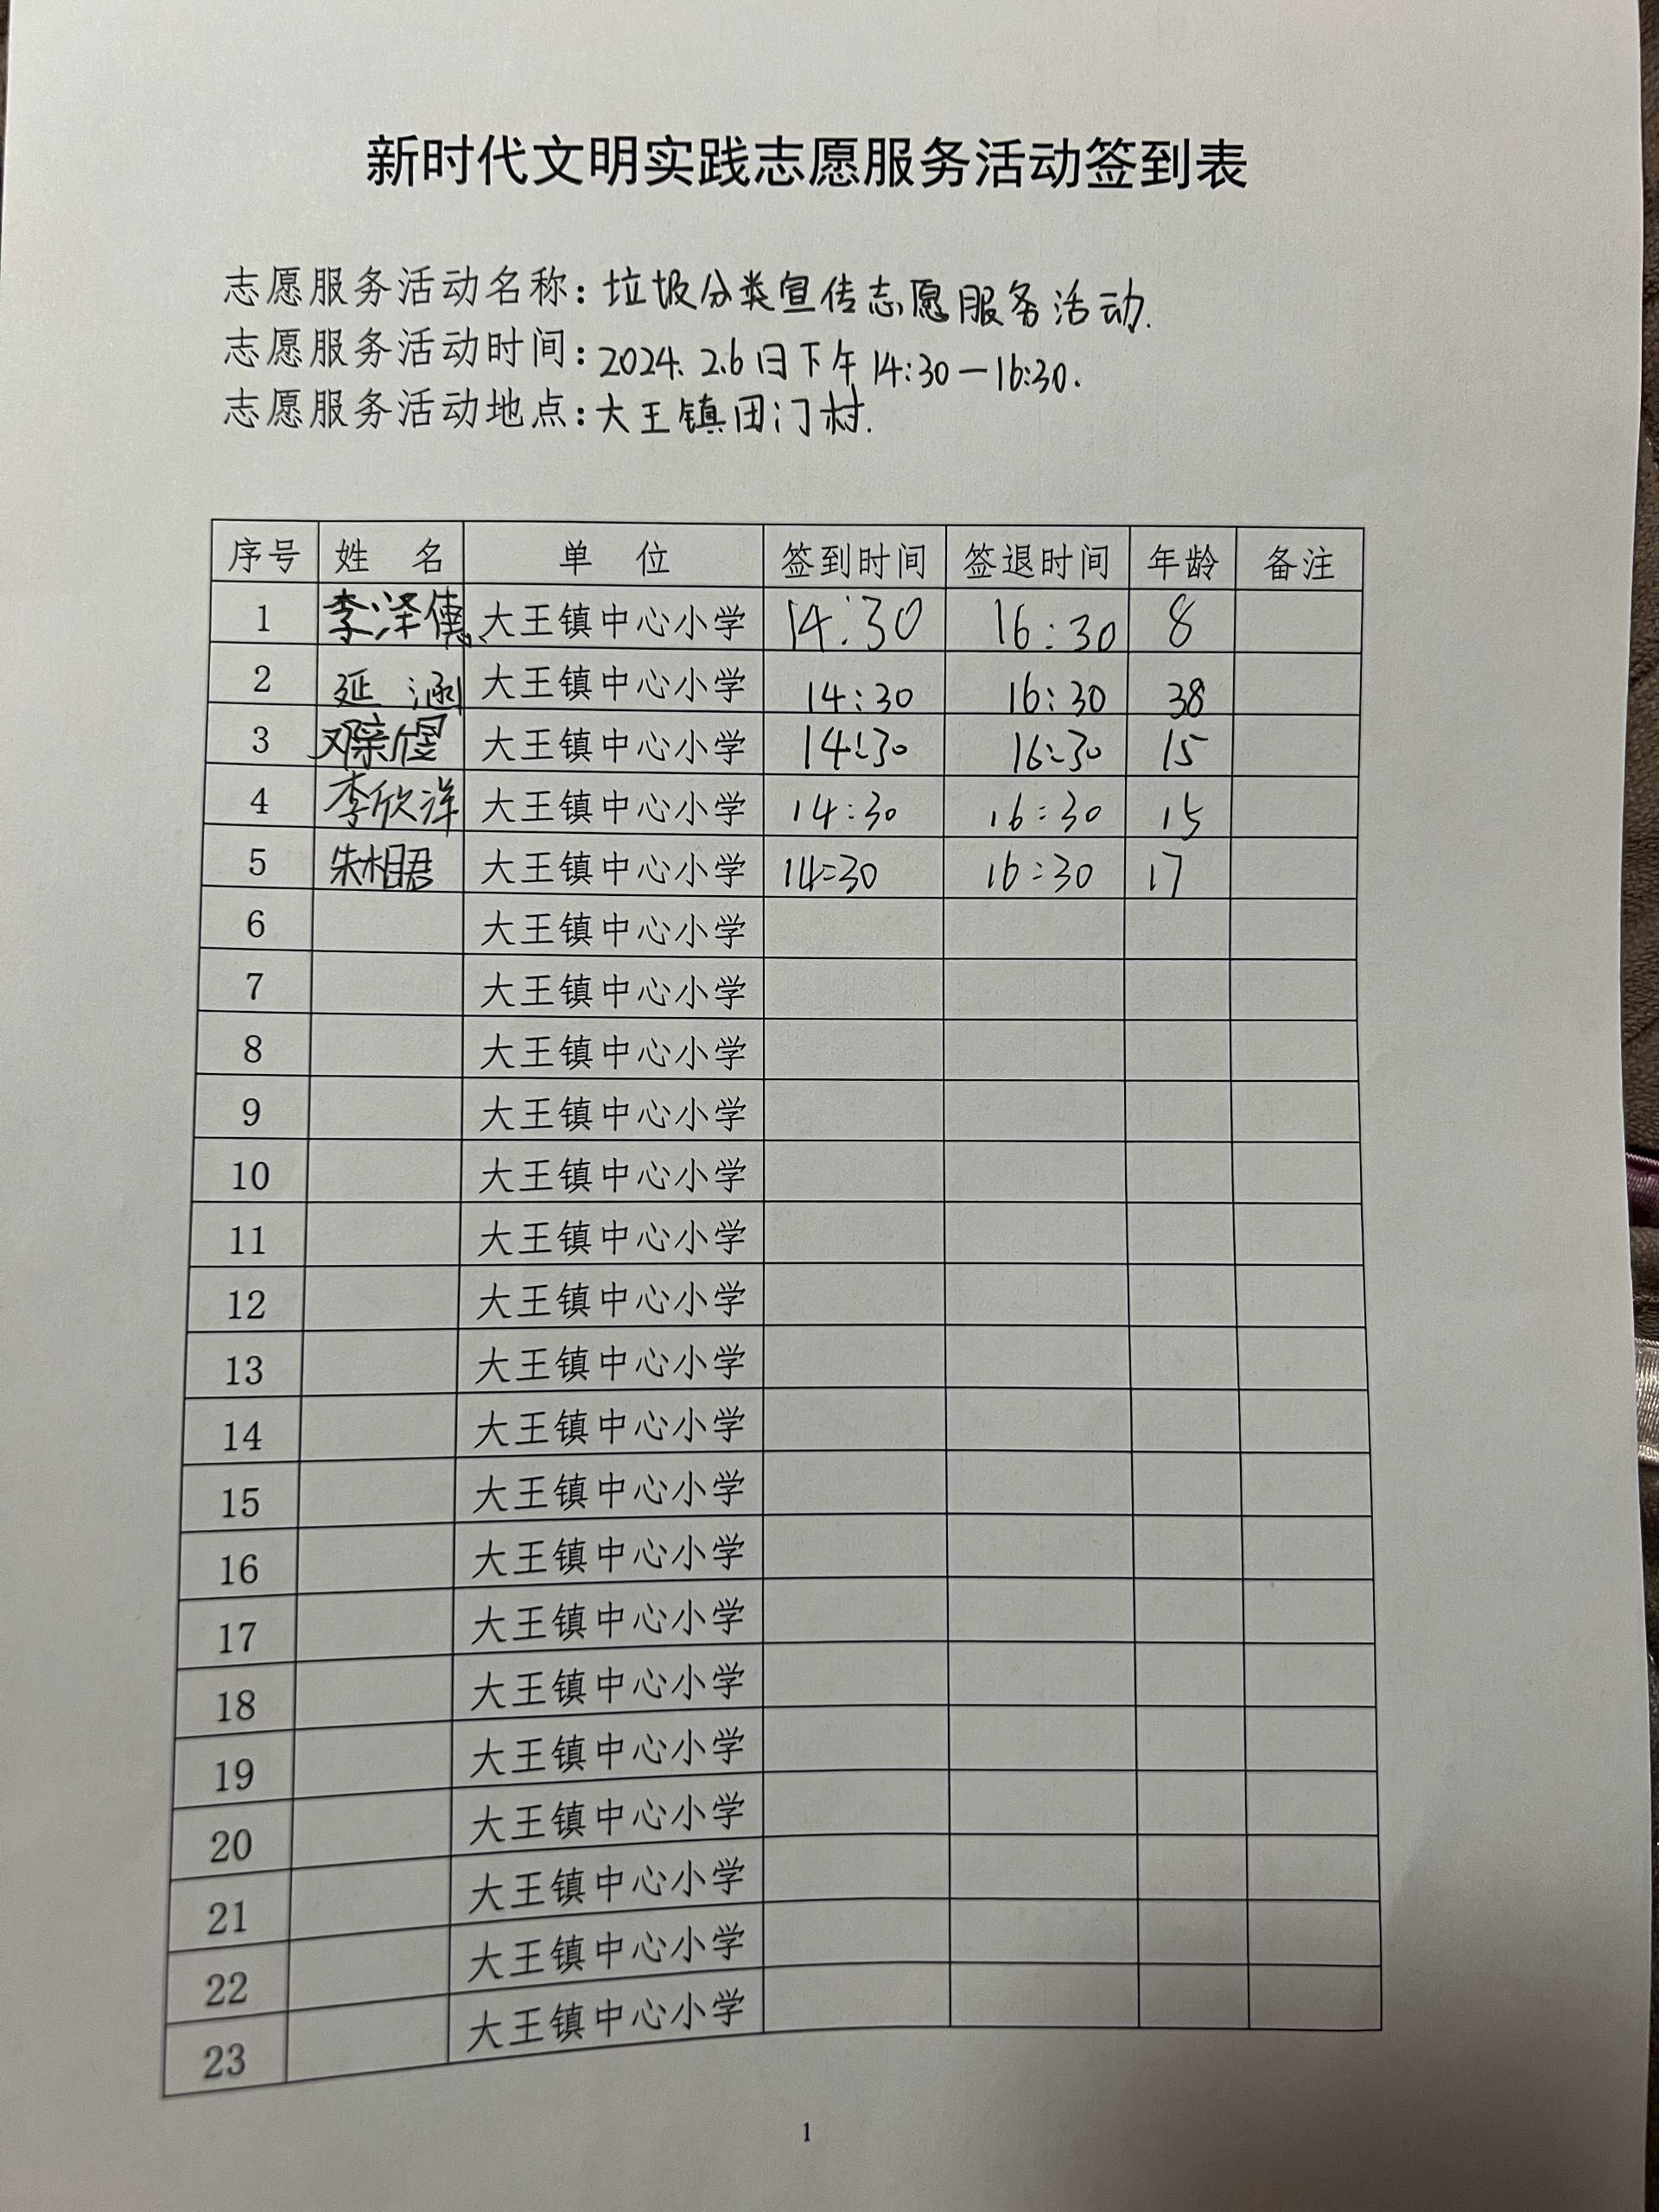 新时代文明实践志愿服务活动签到表
志愿服务活动名称:垃圾分类宣传志愿服务活动.
志愿服务活动时间:2024.2.6日下午14:30—16:30.
志愿服务活动地点:大王镇田门村.
序号 姓 名 单 位 签到时间 签退时间 年龄 备注
1 李泽 大王镇中心小学 14:30 16:30 8
2 延 涵 大王镇中心小学 14:30 16:30 38
3 大王镇中心小学 14:30 16:30 15
4 李欣洋 大王镇中心小学 14:30 16:30 15
5 朱相君 大王镇中心小学 14:30 16:30 17
6 大王镇中心小学
7 大王镇中心小学
8 大王镇中心小学
9 大王镇中心小学
10 大王镇中心小学
11 大王镇中心小学
12 大王镇中心小学
13 大王镇中心小学
14 大王镇中心小学
15 大王镇中心小学
16 大王镇中心小学
17 大王镇中心小学
18 大王镇中心小学
19 大王镇中心小学
20 大王镇中心小学
21 大王镇中心小学
22 大王镇中心小学
23 大王镇中心小学
1